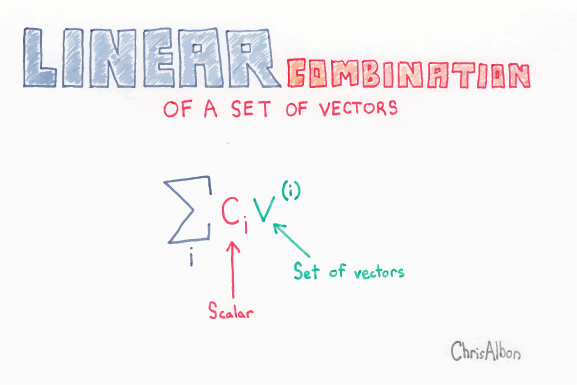 LINEAR COMBINATION
OF A SET OF VECTORS
∑ Cᵢ V⁽ⁱ⁾
i
Set of vectors
Scalar
ChrisAlbon